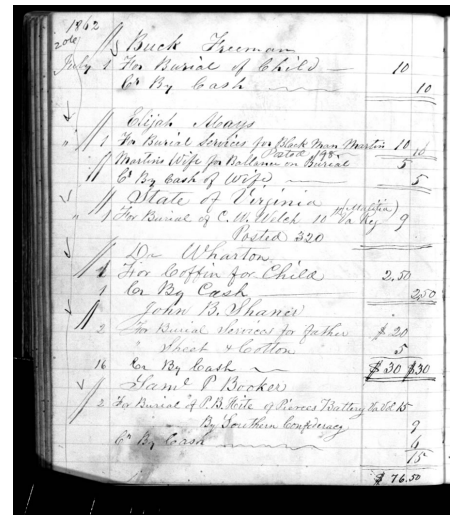 1862
Buck Freeman
July 1 For Burial of Child 10
Cr By Cash 10
Elijah Mays
" 1 For Burial Services for Black Man Martin 10 10
Posted 198
Martins Wife for Ballance on Burial 5
Cr By Cash of Wife 5
State of Virginia
" 1 For Burial of C. W. Welch 11th Va Reg 9
Posted 320
Dr Wharton
1 For Coffin for Child 2.50
1 Cr By Cash 2.50
John B. Shaner
2 For Burial Services for father $ 20
" Sheet & Cotton 5
16 Cr By Cash $30 $30
Saml P Booker
2 For Burial of P. B. Hite of Pierces Battery Va Vol 15
By Southern Confideracy 9
Cr By Cash 6
15
$ 76.50